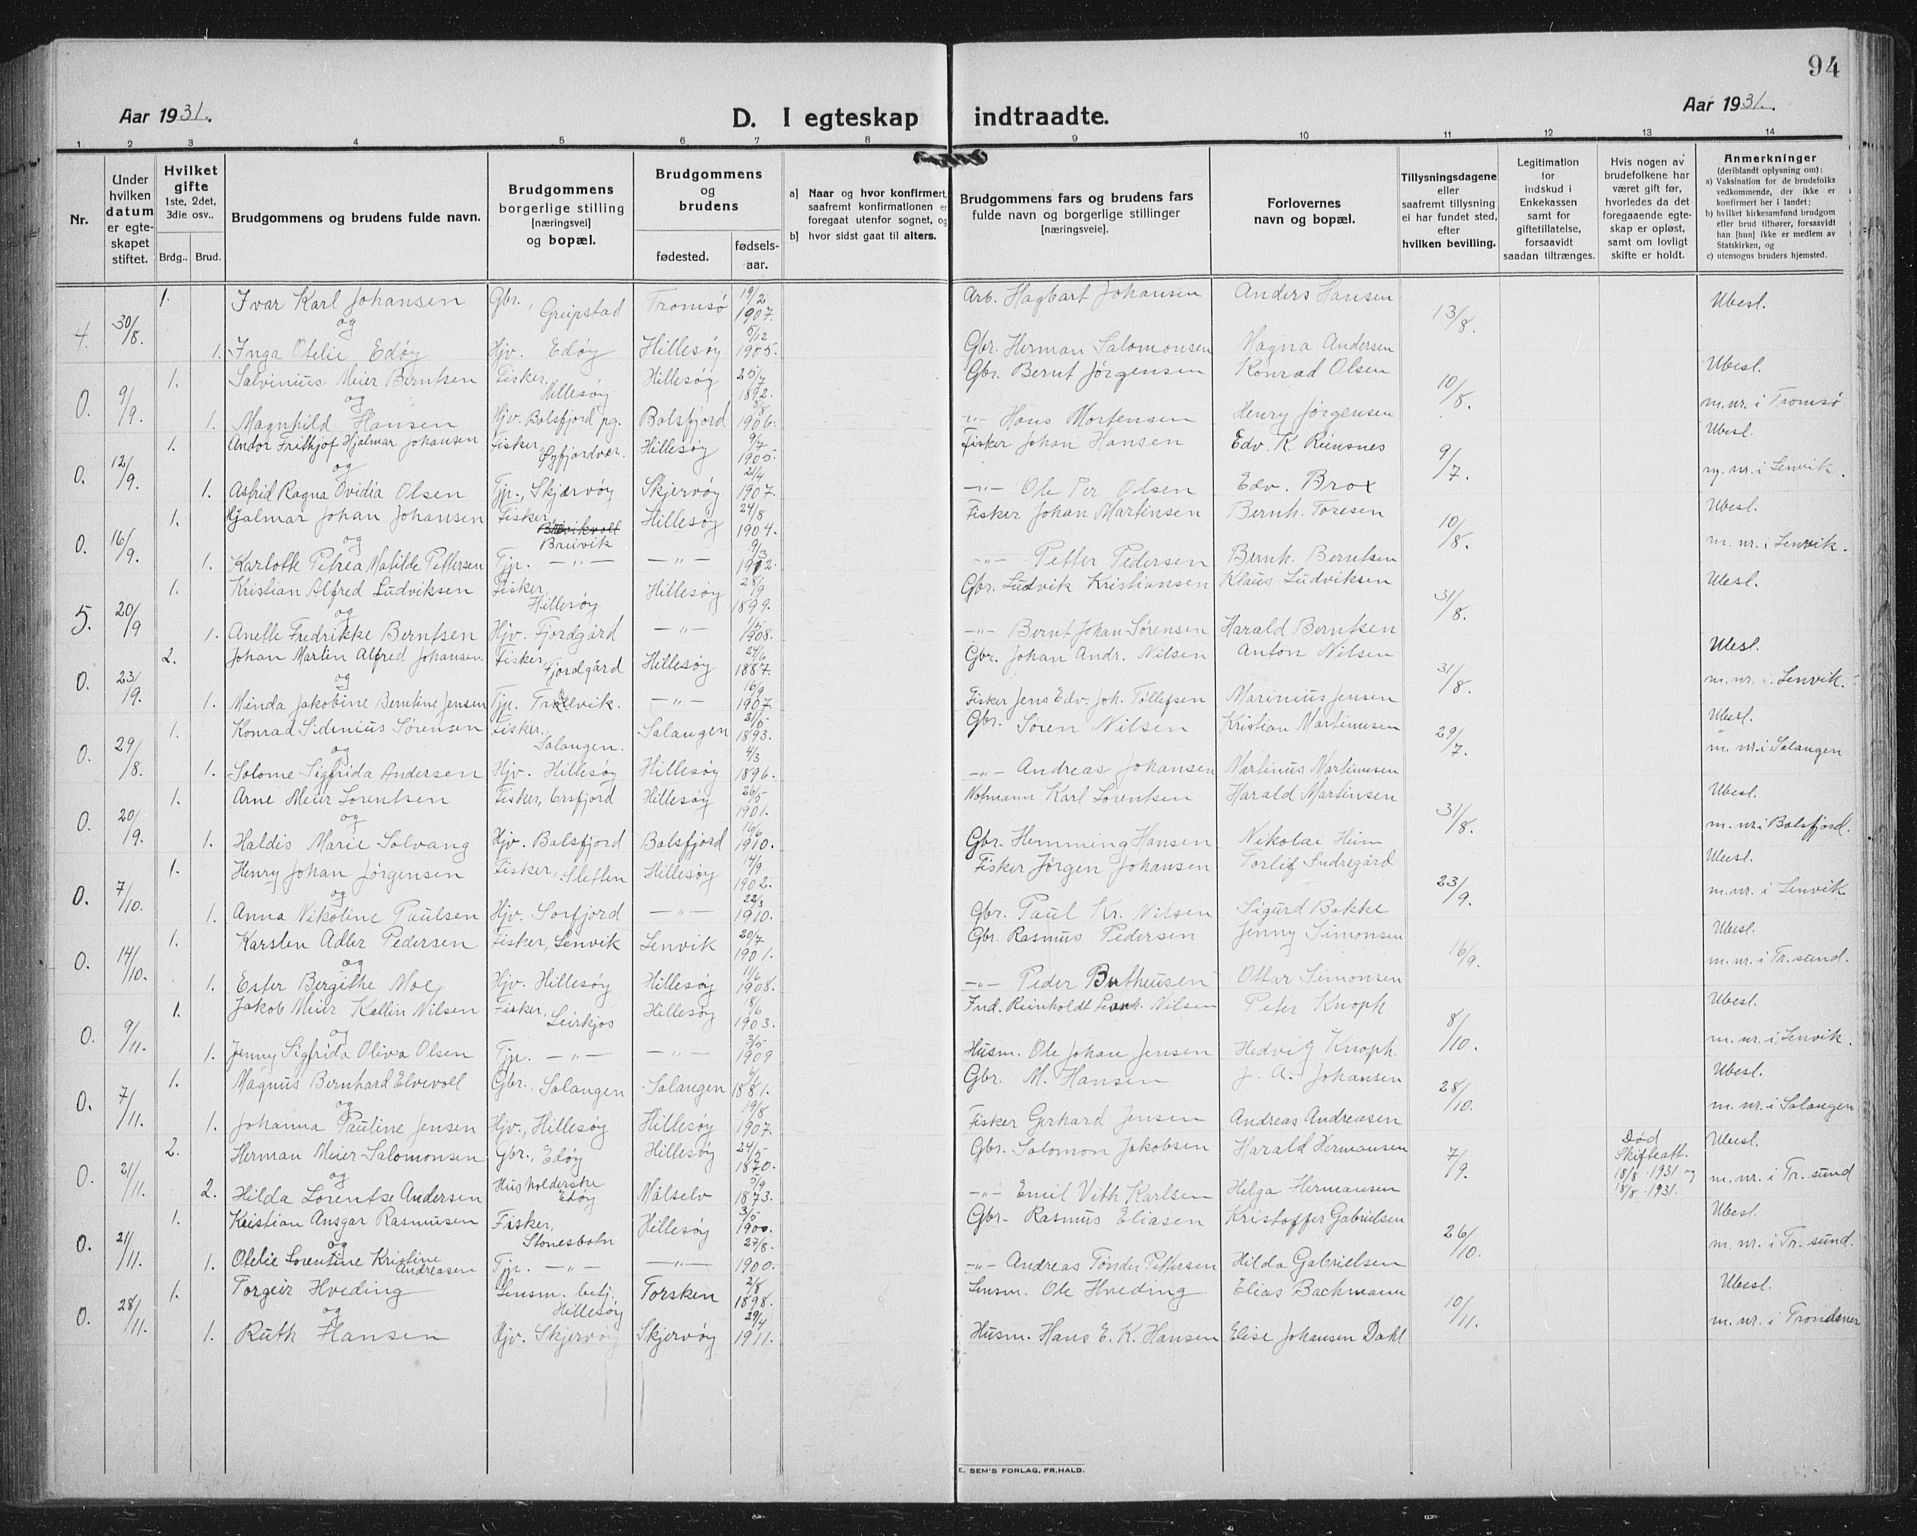 94
Aar 1931.
D. I egteskap indtraadte.
Aar 1931.
1 2 3 4 5 6 7 8 9 10 11 12 13 14
Nr.
Under hvilken datum er egteskapet stiftet.
Hvilket gifte 1ste, 2det, 3die osv..
Brdg.. Brud.
Brudgommens og brudens fulde navn.
Brudgommens borgerlige stilling [næringsvei] og bopæl.
Brudgommens og brudens
fødested.
fødselsaar.
a) Naar og hvor konfirmert, saafremt konfirmationen er foregaat utenfor sognet, og
b) hvor sidst gaat til alters.
Brudgommens fars og brudens fars fulde navn og borgerlige stillinger [næringsveie].
Forlovernes navn og bopæl.
Tillysningsdagene eller saafremt tillysning ei har fundet sted, efter hvilken bevilling.
Legitimation for indskud i Enkekassen samt for giftetillatelse, forsaavidt saadan tiltrænges.
Hvis nogen av brudefolkene har været gift før, hvorledes da det foregaaende egteskap er opløst, samt om lovligt skifte er holdt.
Anmerkninger (deriblandt oplysning om):
a) Vaksination for de brudefolks vedkommende, der ikke er konfirmert her i landet;
b) hvilket kirkesamfund brudgom eller brud tilhører, forsaavidt han [hun] ikke er medlem av Statskirken, og
c) utensogns bruders hjemsted.
4. 30/8. 1. Ivar Karl Johansen Gbr., Grepstad Tromsø 19/2 1907. Arb. Hagbart Johansen Anders Hansen 13/8. Ubesl.
og
1. Inga Otelie Edøy Hjv. Edøy Hillesøy 5/12 1905. Gbr. Herman Salomonsen Magna Andersen
0. 9/9. 1. Salvinius Meier Berntsen Fisker, Hillesøy Hillesøy 25/7 1892. Gbr. Bernt Jørgensen Konrad Olsen 10/8. Ubesl.
og
1. Magnhild Hansen Hjv. Balsfjord pg. Balsfjord 8/8 1906. -"- Hans Mortensen Henry Jørgensen m. nr. i Tromsø
0. 12/9. 1. Andor Frithjof Hjalmar Johansen Fisker, Øyfjordvær Hillesøy 9/7 1905. Fisker Johan Hansen Edv. K. Reinsnes 9/7. Ubesl.
og
1. Astrid Ragna Ovidia Olsen Tjp., Skjærvøy Skjervøy 21/4 1907. -"- Ole Per Olsen Edv. Brox m. nr. i Lenvik.
0. 16/9. 1. Hjalmar Johan Johansen Fisker, Breivik Hillesøy 24/8 1904. Fisker Johan Martinsen Bernh. Toresen 10/8. Ubesl.
og
1. Karlotte Petrea Matilde Pettersen Tjp. -"- -"- 9/3 1912. -"- Petter Pedersen Bernh. Berntsen m. nr. i Lenvik.
5. 20/9 1. Kristian Alfred Ludviksen Fisker, Hillesøy Hillesøy 28/9 1899. Gbr. Ludvik Kristiansen Klaus Ludviksen 31/8. Ubesl.
og
1. Anette Fredrikke Berntsen Hjv. Fjordgård -"- 1/5 1908. -"- Bernt Johan Sørensen Harald Berntsen
0. 23/9. 2. Johan Martin Alfred Johansen Fisker, Fjordgård Hillesøy 24/6 1887. Gbr. Johan Andr. Nilsen Anton Nilsen 31/8. Ubesl.
og
1. Minda Jakobine Berntine Jensen Tjp. Trælvik. -"- 16/9 1907. Fisker Jens Edv. Joh. Tollefsen Marinius Jensen m. nr. i Lenvik.
0. 29/8. 1. Konrad Sidenius Sørensen Fisker, Salangen. Salangen 31/5 1893. Gbr. Søren Nilsen Kristian Martinusen 29/7. Ubesl.
og
1. Salome Sigfrida Andersen Hjv. Hillesøy Hillesøy 4/3 1896. -"- Andreas Johansen Martinus Martinusen m. nr. i Salangen
0. 20/9. 1. Arne Meier Lorentsen Fisker, Ersfjord Hillesøy 26/5 1901. Notmann Karl Lorentsen Harald Martinsen 31/8. Ubesl.
og
1. Haldis Marie Solvang Hjv. Balsfjord Balsfjord 16/6 1910. Gbr. Hemming Hansen Nikolai Heim m. nr. i Balsfjord.
0. 7/10. 1. Henry Johan Jørgensen Fisker, Sletten Hillesøy 14/9 1902. Fisker Jørgen Johansen Torleif Indregård 23/9. Ubesl.
og
1. Anna Nikoline Paulsen Hjv. Sørfjord -"- 22/3 1910. Gbr. Paul Kr. Nilsen Sigurd Bakke m. nr. i Lenvik
0. 14/10. 1. Karsten Adler Pedersen Fisker, Lenvik Lenvik 20/7 1901. Gbr. Rasmus Pedersen Jenny Simonsen 16/9. Ubesl.
og
1. Ester Bergithe Moe Hjv. Hillesøy Hillesøy 11/6 1908. -"- Peder Ottar Simonsen m. nr. i Tr.sund.
0. 9/11. 1. Jakob Meier Kollin Nilsen Fisker, Leirkjos Hillesøy 18/6 1903. Ind. Reinholdt Nilsen Peter Knoph 8/10. Ubesl.
og
1. Jenny Sigfrida Oliva Olsen Tjp. -"- -"- 3/5 1909 Husm. Ole Johan Jensen Hedvig Knoph. m. nr. i Lenvik.
0. 7/11. 1. Magnus Bernhard Elvevoll Gbr., Salangen Salangen 6/1 1881. Gbr. M. Hansen J. A. Johansen 28/10. Ubesl.
og
1. Johanna Pauline Jensen Hjv., Hillesøy Hillesøy 19/8 1907. Fisker Gerhard Jensen Andreas Andreasen m. nr. i Salangen
0. 21/11. 2. Herman Meier Salomonsen Gbr., Edøy Hillesøy 24/5 1870. Gbr. Salomon Jakobsen Harald Hermansen 7/9. Død Skifteatt. 18/8 1931 og 18/8 1931. Ubesl.
og
2. Hilda Lorentse Andersen Husholderske Edøy Målselv 5/9 1873. -"- Emil Vith Karlsen Helga Hermansen m. nr. i Tr. sund
0. 21/11. 1. Kristian Ansgar Rasmusen Fisker, Stonesbotn Hillesøy 3/5 1900. Gbr. Rasmus Eliasen Kristoffer Gabrielsen 26/10. Ubesl.
og
1. Otelie Lorentine Kristine Andreasen Tjp. -"- -"- 27/8. 1900. -"- Andreas Tønder Pettersen Hilda Gabrielsen m. nr. i Tr. sund.
0. 28/11. 1. Torgeir Hveding Lensm. betj. Hillesøy Torsken 2/8 1898. Lensm. Ole Hveding Elias Bachmann 10/11. Ubesl.
og
1. Ruth Hansen Hjv. Skjervøy Skjervøy 29/4 1911. Husm. Hans E. K. Hansen Elise Johansen Dahl m. nr. i Trondenes
E. SEM'S FORLAG, FR.HALD.